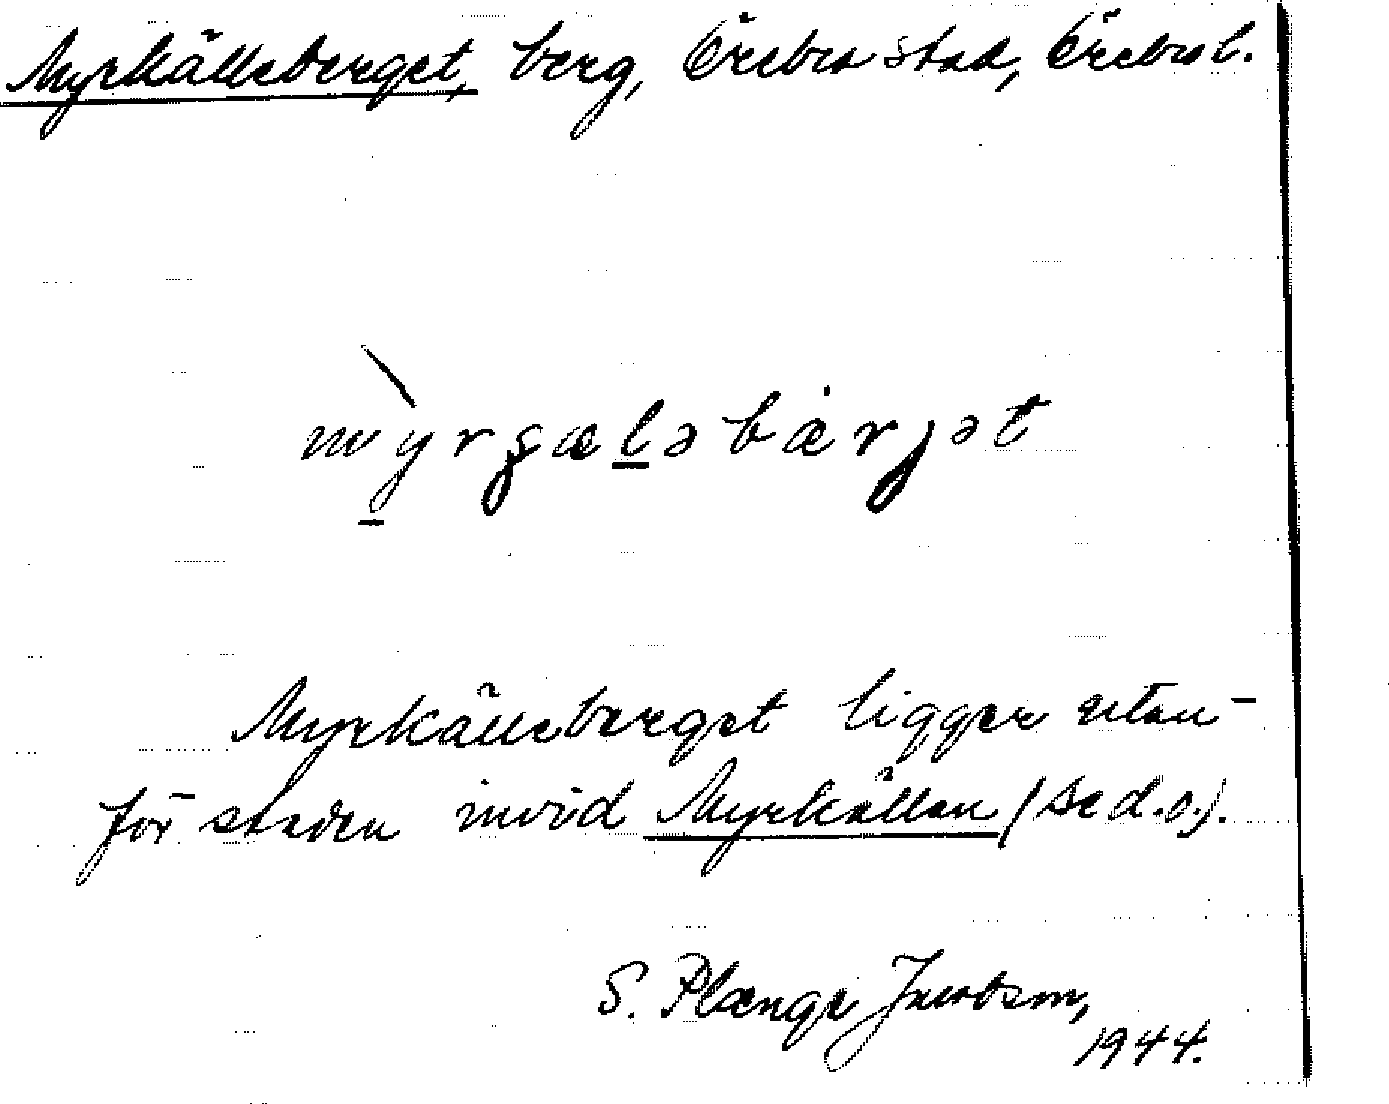 Myrkälleberget, berg, Örebro stad, Örebro l.
mỳrʂæləbærjət
Myrkälleberget ligger utan-
för staden invid Myrkällan (se d.o.).
S. Plænge Jacobson,
1944.